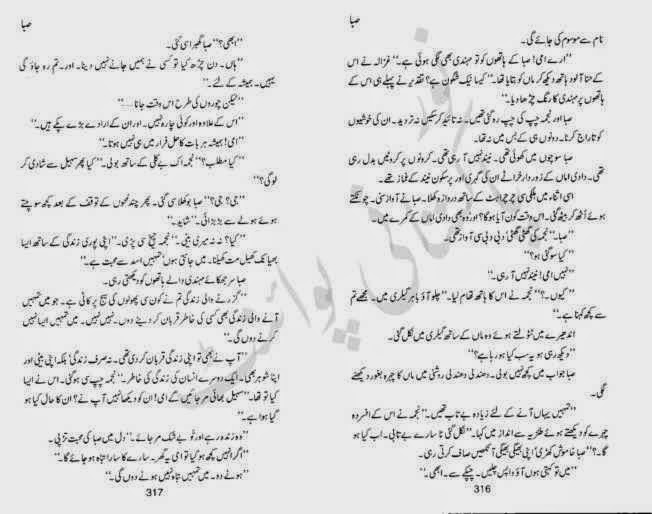 صبا
نام سے موسوم کی جائے گی۔
”ارے امی! صبا کے ہاتھوں کو تو مہندی بھی لگی ہوئی ہے۔“ غزالہ نے اس
کے حنا آلود ہاتھ دیکھ کر ماں کو بتایا تھا۔ ”کیسا نیک شگون ہے؟ تقدیر نے پہلے ہی اس کے
ہاتھوں پر مہندی کا رنگ چڑھا دیا۔“
صبا اور نجمہ چپ کی چپ رہ گئی تھیں۔ نہ تائید کر سکیں نہ تردید۔ ان کی خوشیوں
کو تاراج کرنا۔ دونوں ہی کے بس میں نہ تھا۔
صبا سوچوں میں کھوئی تھی۔ نیند نہیں آ رہی تھی۔ کروٹوں پر کروٹیں بدل رہی
تھی۔ دادی اماں کے زوردار خراٹے ان کی گہری اور پرسکون نیند کے غماز تھے۔
اسی اثناء میں ہلکی سی چرچراہٹ کے ساتھ دروازہ کھلا۔ صبا نے آواز سنی۔ چونکتے
ہوئے اُٹھ کر بیٹھ گئی۔ اس وقت کون آیا ہوگا؟ اور وہ بھی دادی اماں کے کمرے میں۔
”صبا۔“ نجمہ کی گھٹی گھٹی دبی دبی سی آواز تھی۔
”کیا سو گئی ہو؟“
”نہیں امی! نیند نہیں آ رہی۔“
”کیوں۔؟“ نجمہ نے اس کا ہاتھ تھام لیا۔ ”چلو آؤ باہر گیلری میں۔ مجھے تم
سے کچھ کہنا ہے۔“
اندھیرے میں ٹٹولتے ہوئے وہ ماں کے ساتھ گیلری میں نکل گئی۔
”دیکھ رہی ہو یہ سب کیا ہو رہا ہے؟“
صبا جواب میں کچھ نہیں بولی۔ دھندلی دھندلی روشنی میں ماں کا چہرہ بغور دیکھنے
لگی۔
”تمہیں یہاں آنے کے لئے زیادہ بے تاب تھیں۔“ نجمہ نے اس کے افسردہ
چہرے کو دیکھتے ہوئے طنزیہ سے انداز میں کہا۔ ”نکل گئی نا سارے بے تابی۔ اب کیا ہو
گا۔؟“ صبا خاموش کھڑی اپنی بھیگی بھیگی آنکھیں صاف کرتی رہی۔
”میں تو کہتی ہوں آؤ واپس چلیں۔ چپکے سے۔ ابھی۔“
316
صبا
”ابھی؟“ صبا گھبرا سی گئی۔
”ہاں۔ دن چڑھ گیا تو کسی نے ہمیں جانے نہیں دینا۔ اور۔ تم رہ جاؤ گی
یہیں۔ ہمیشہ کے لئے۔“
”لیکن چوروں کی طرح اس وقت جانا.....“
”اس کے علاوہ اور کوئی چارہ نہیں۔ اور ان کے ارادے بڑے پکے ہیں۔“
”امی! ہمیشہ ہر بات کا حل فرار میں ہی نہیں ہوتا۔“
”کیا مطلب؟“ نجمہ اک بے کلی کے ساتھ بولی۔ ”کیا پھر سہیل سے شادی کر
لو گی؟“
”جی؟ جی؟“ صبا بوکھلا سی گئی۔ پھر چند لمحوں کے توقف کے بعد کچھ سوچتے
ہوئے ہولے سے بڑبڑائی۔ ”شاید۔“
”کیا؟ نہ نہ میری بیٹی۔“ نجمہ چیخ سی پڑی۔ ”اپنی پوری زندگی کے ساتھ ایسا
بھیانک کھیل مت کھیلنا۔ میں جانتی ہوں تمہیں اسد سے محبت ہے۔“
صبا سر جھکائے مہندی والے ہاتھوں کو دیکھتی رہی۔
”گزرنے والی زندگی تم نے کون سی پھولوں کی سیج پر کاٹی ہے۔ جو میں تمہیں
آنے والی زندگی بھی کسی کی خاطر قربان کر دینے دوں۔ نہیں نہیں۔ میں تمہیں ایسا نہیں
کرنے دوں گی۔“
”آپ نے بھی تو اپنی زندگی قربان کر دی تھی۔ نہ صرف زندگی بلکہ اپنی بیٹی اور
اپنا شوہر بھی۔ ایک دوسرے انسان کی زندگی کی خاطر۔“ نجمہ چپ سی ہو گئی۔ اس نے ایسا
کیا تو تھا۔ ”سہیل بھائی مر جائیں گے امی! ان کو دیکھا نہیں آپ نے؟ ان کا حال کیا ہو
گیا ہوا ہے۔“
”وہ زندہ رہے اور تو بے شک مر جائے۔“ دل میں صبا کی محبت تڑپی۔
”اگر انہیں کچھ ہو گیا تو امی یہ گھر۔ سارے کا سارا تباہ ہو جائے گا۔“
”ہونے دو۔ میں تمہیں تباہ نہیں ہونے دوں گی۔“
317